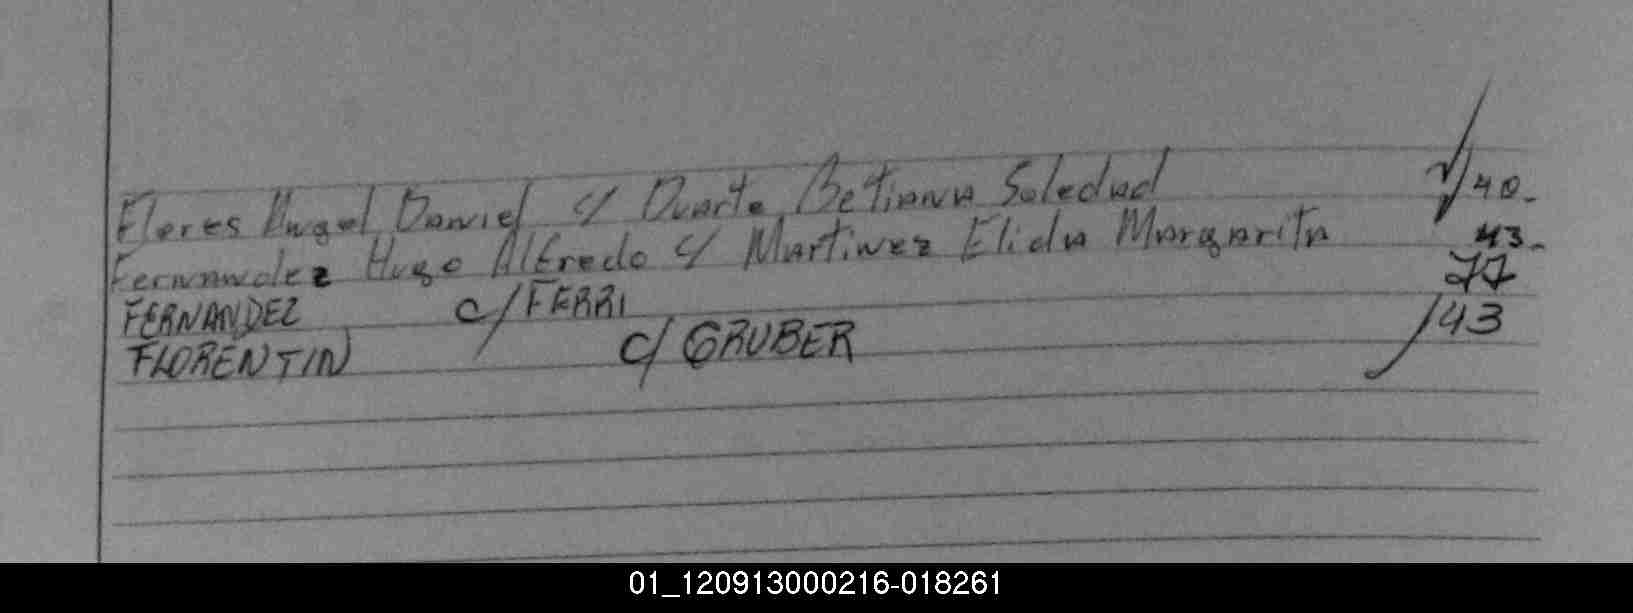 Flores Angel Daniel c/ Duarte Betiana Soledad 40.-
Fernandez Hugo Alfredo c/ Martinez Elida Margarita 43.-
FERNANDEZ c/ FERRI 77
FLORENTIN c/ GRUBER 143
01_120913000216-018261